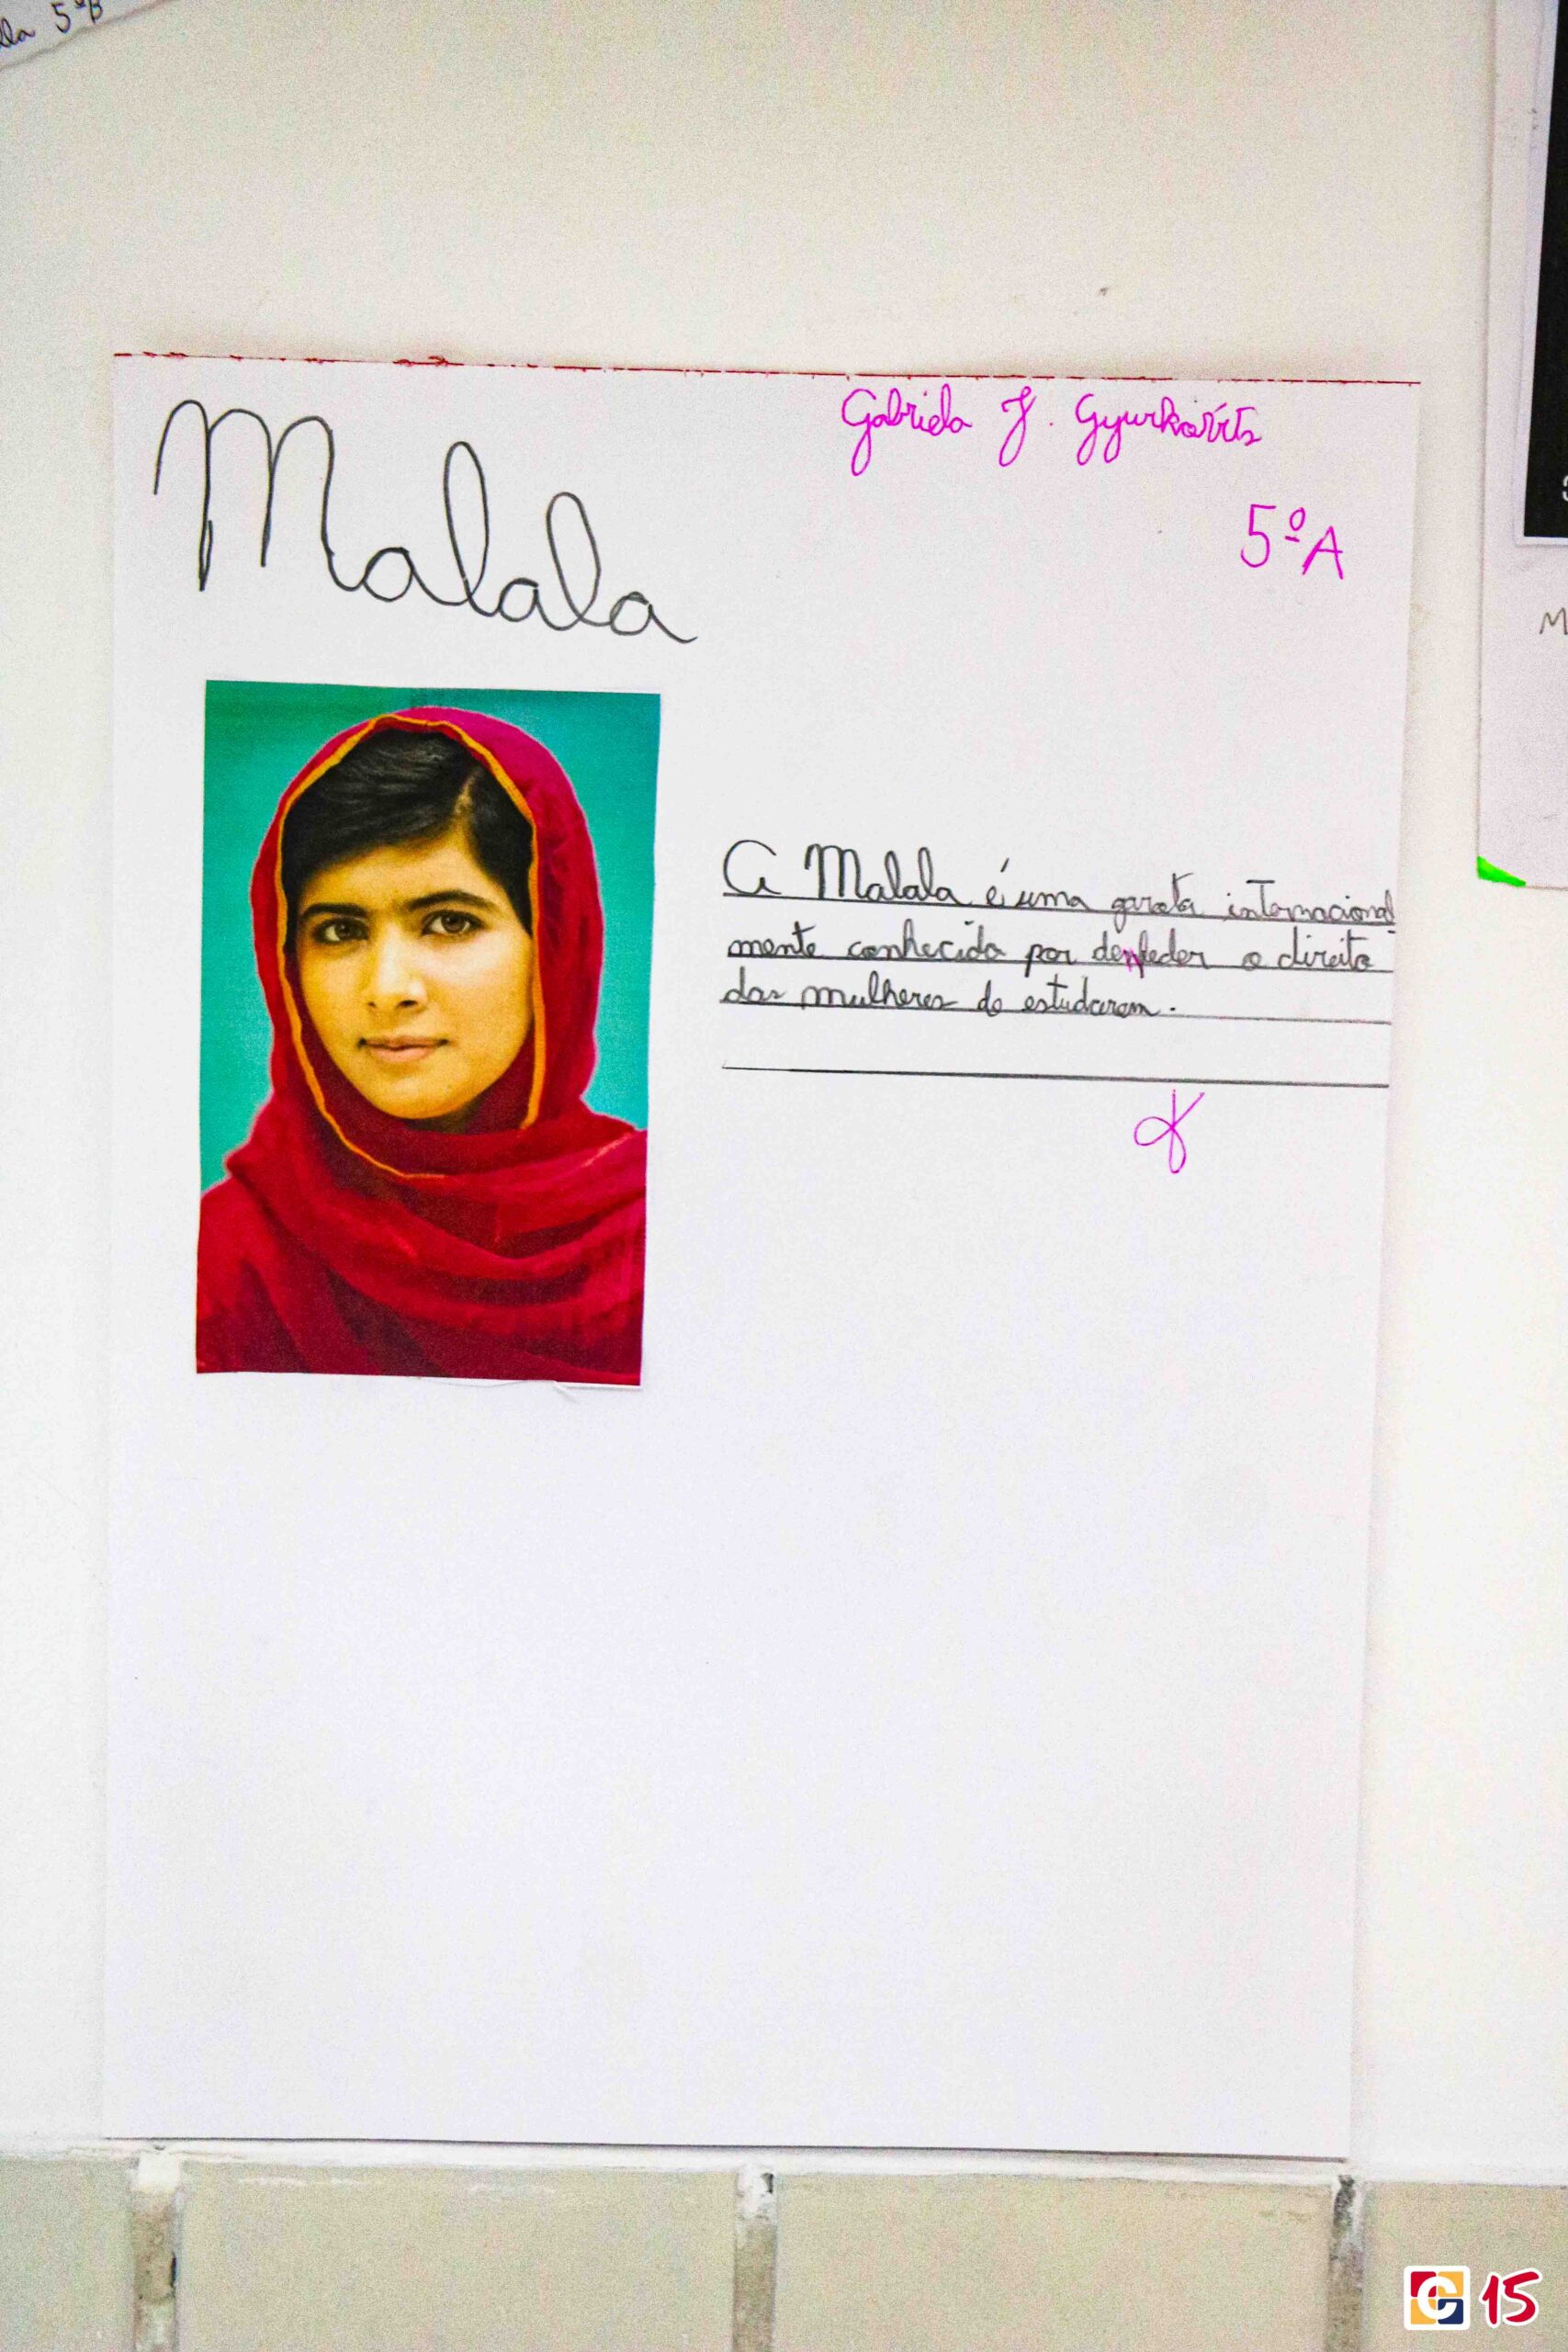 5ºB
Malala
Gabriela J. Gyurkovits
5ºA
A Malala é uma garota internacional
mente conhecida por denfeder o direito
das mulheres de estudarem.
M
15